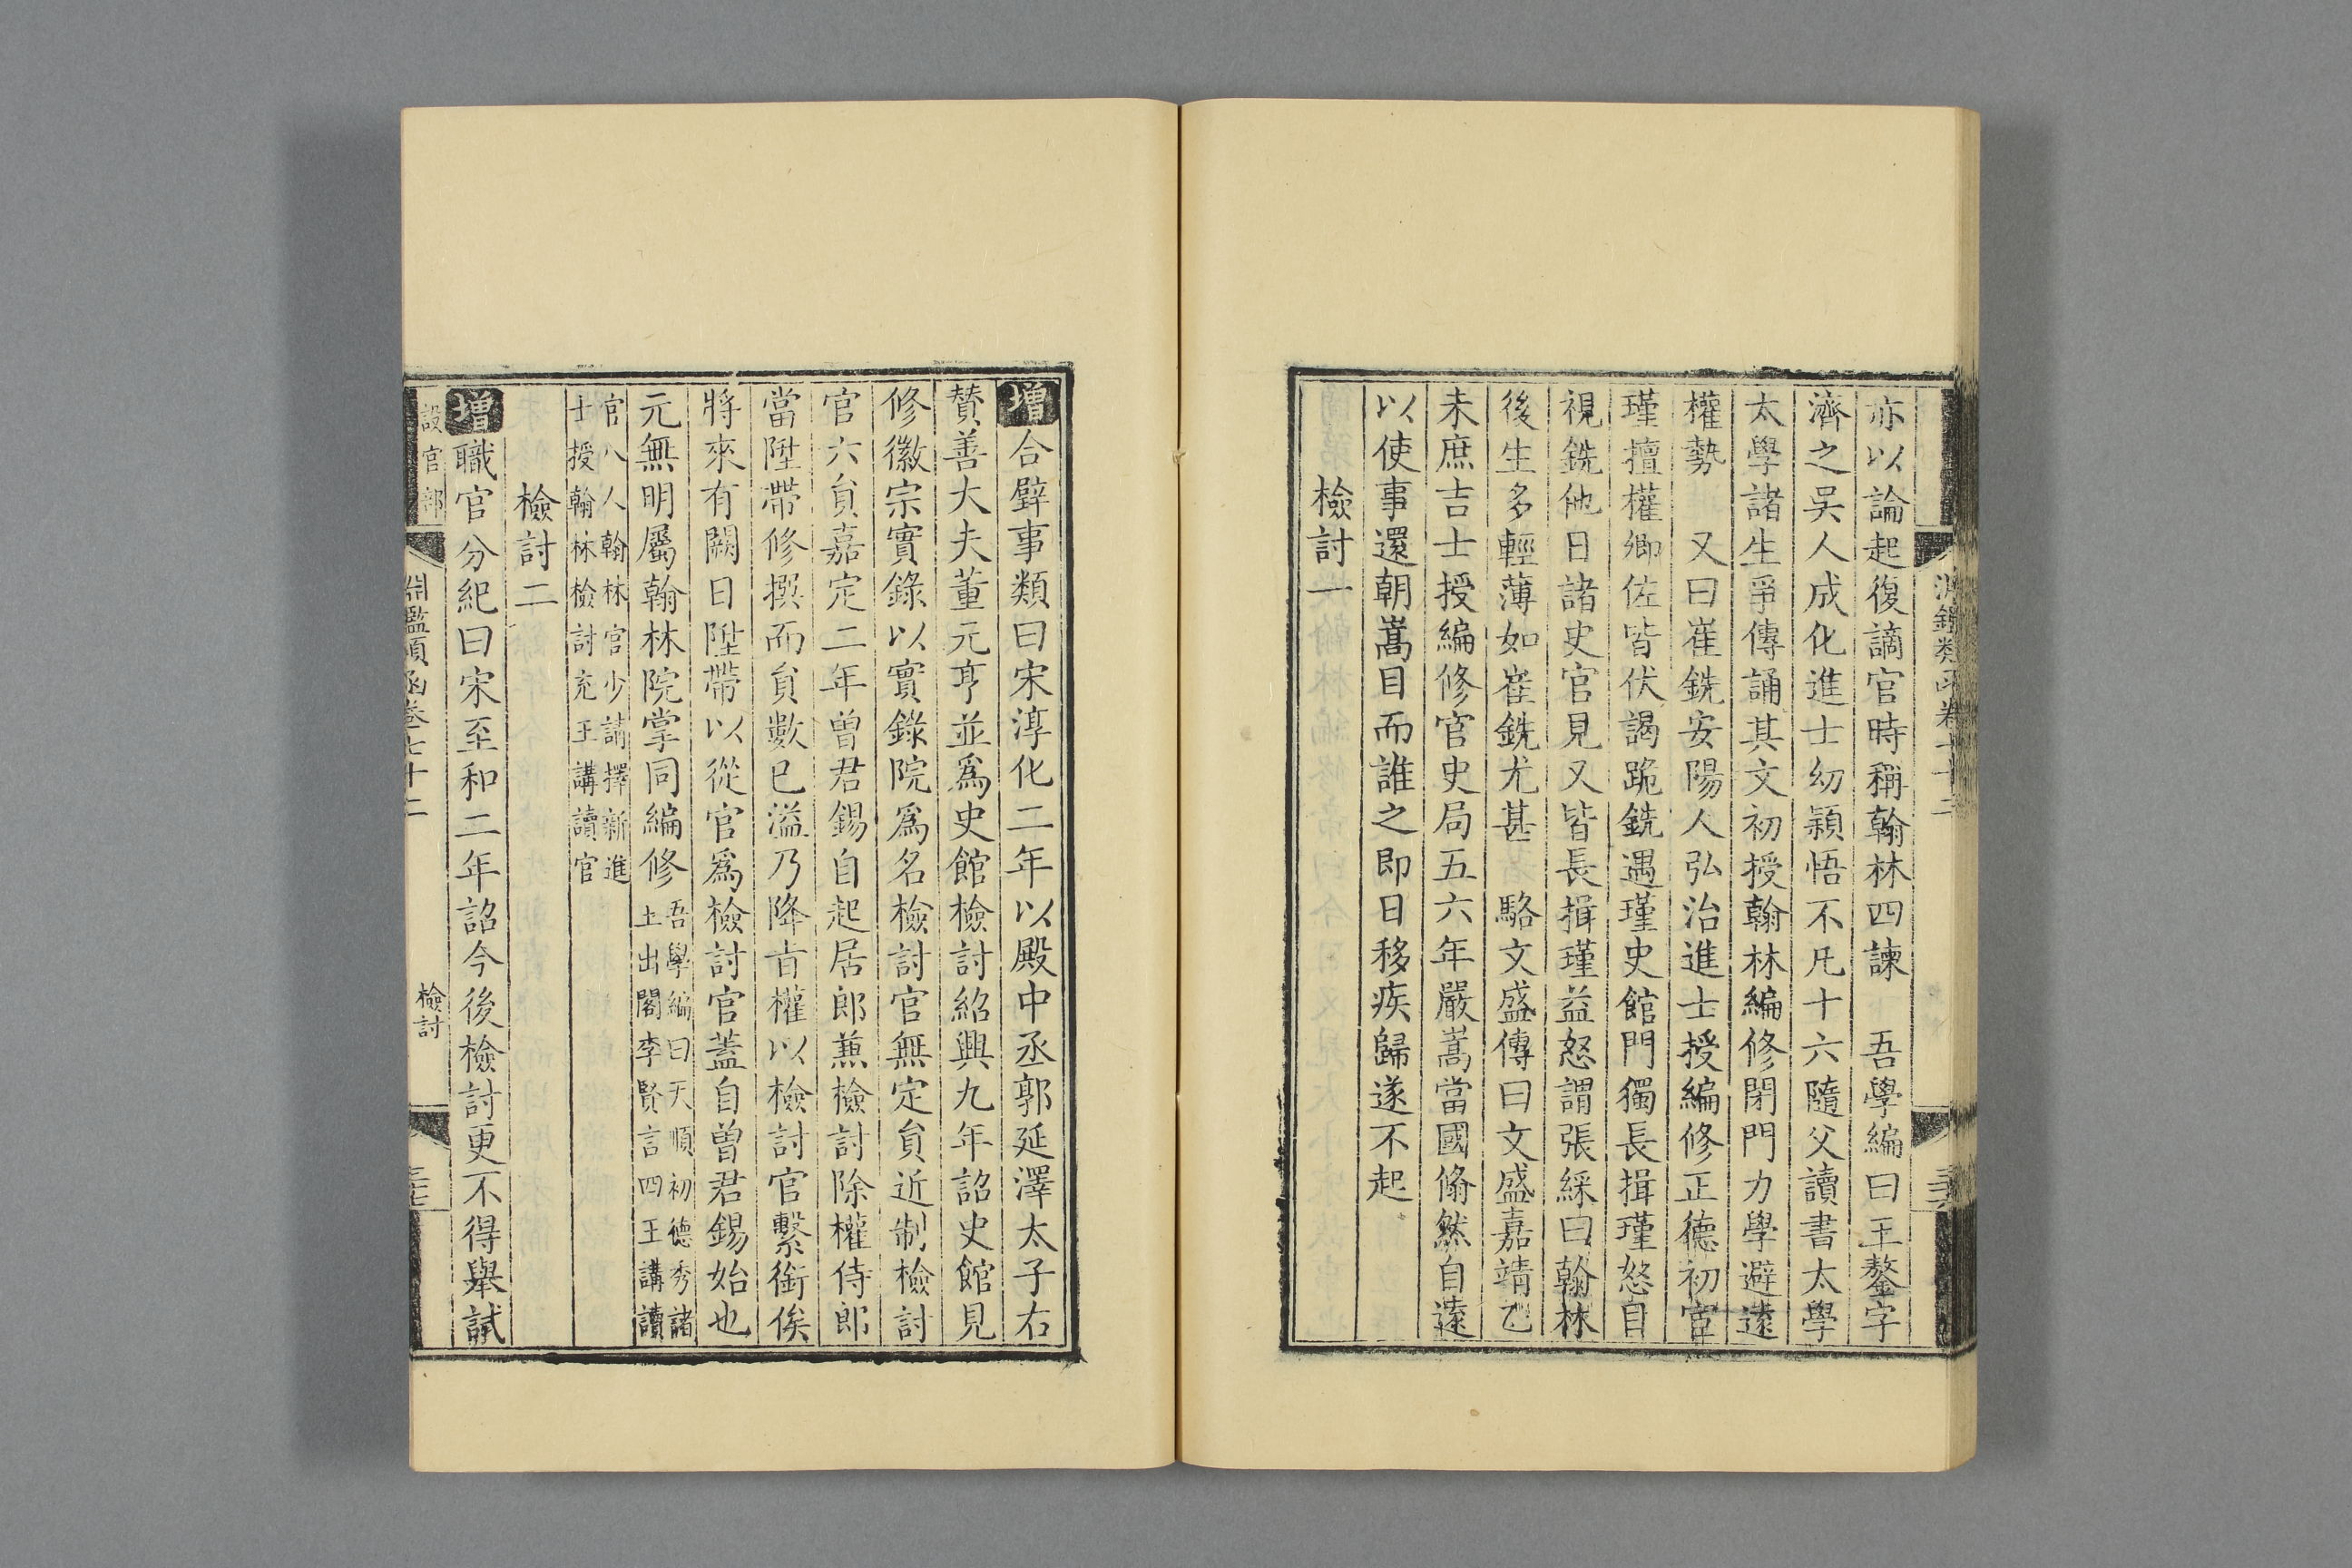 亦以論起復謫官時稱翰林四諫　吾學編曰王鏊字
濟之吳人成化進士幼穎悟不凡十六隨父讀書太學
太學諸生爭傳誦其文初授翰林編修閉門力學避遠
權勢　又曰崔銑安陽人弘治進士授編修正德初宦
瑾擅權卿佐皆伏謁跪銑遇瑾史館門獨長揖瑾怒自
視銑他日諸史官見又皆長揖瑾益怒謂張綵曰翰林
後生多輕薄如崔銑尤甚　駱文盛傳曰文盛嘉靖乙
未庶吉士授編修官史局五六年嚴嵩當國翛然自遠
以使事還朝嵩目而誰之即日移疾歸遂不起
檢討一
增合璧事類曰宋淳化二年以殿中丞郭延澤太子右
贊善大夫董元亨並爲史館檢討紹興九年詔史館見
修徽宗實錄以實錄院爲名檢討官無定員近制檢討
官六員嘉定二年曾君錫自起居郎兼檢討除權侍郎
當陞帶修撰而員數已溢乃降旨權以檢討官繫銜俟
將來有闕日陞帶以從官爲檢討官蓋自曾君錫始也
元無明屬翰林院掌同編修
吾學編曰天順初德秀諸
王出閣李賢言四王講讀
官八人翰林官少請擇新進
士授翰林檢討充王講讀官
檢討二
增職官分紀曰宋至和二年詔今後檢討更不得舉試
設官部
淵鑑類函卷七十二
檢討